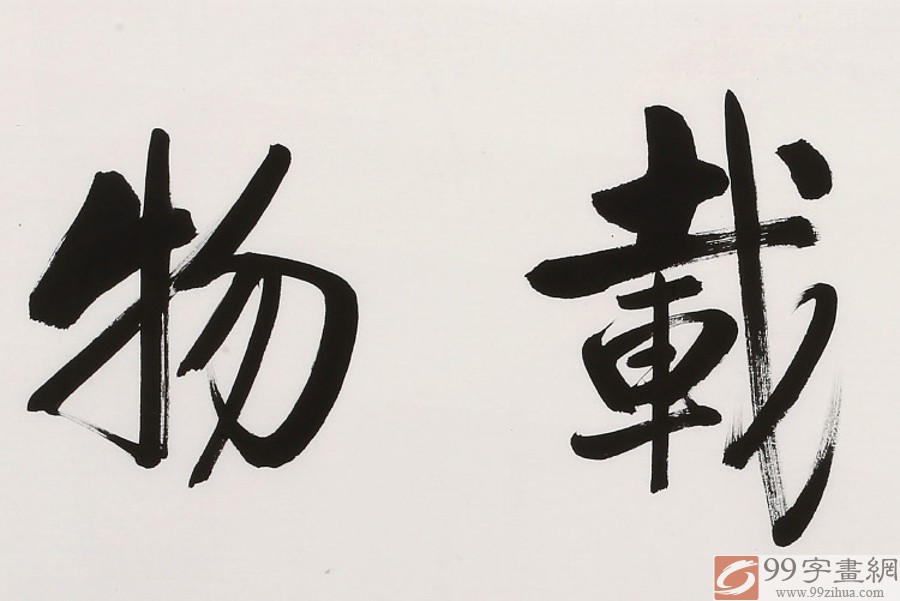 載物
99字畫網
www.99zihua.com